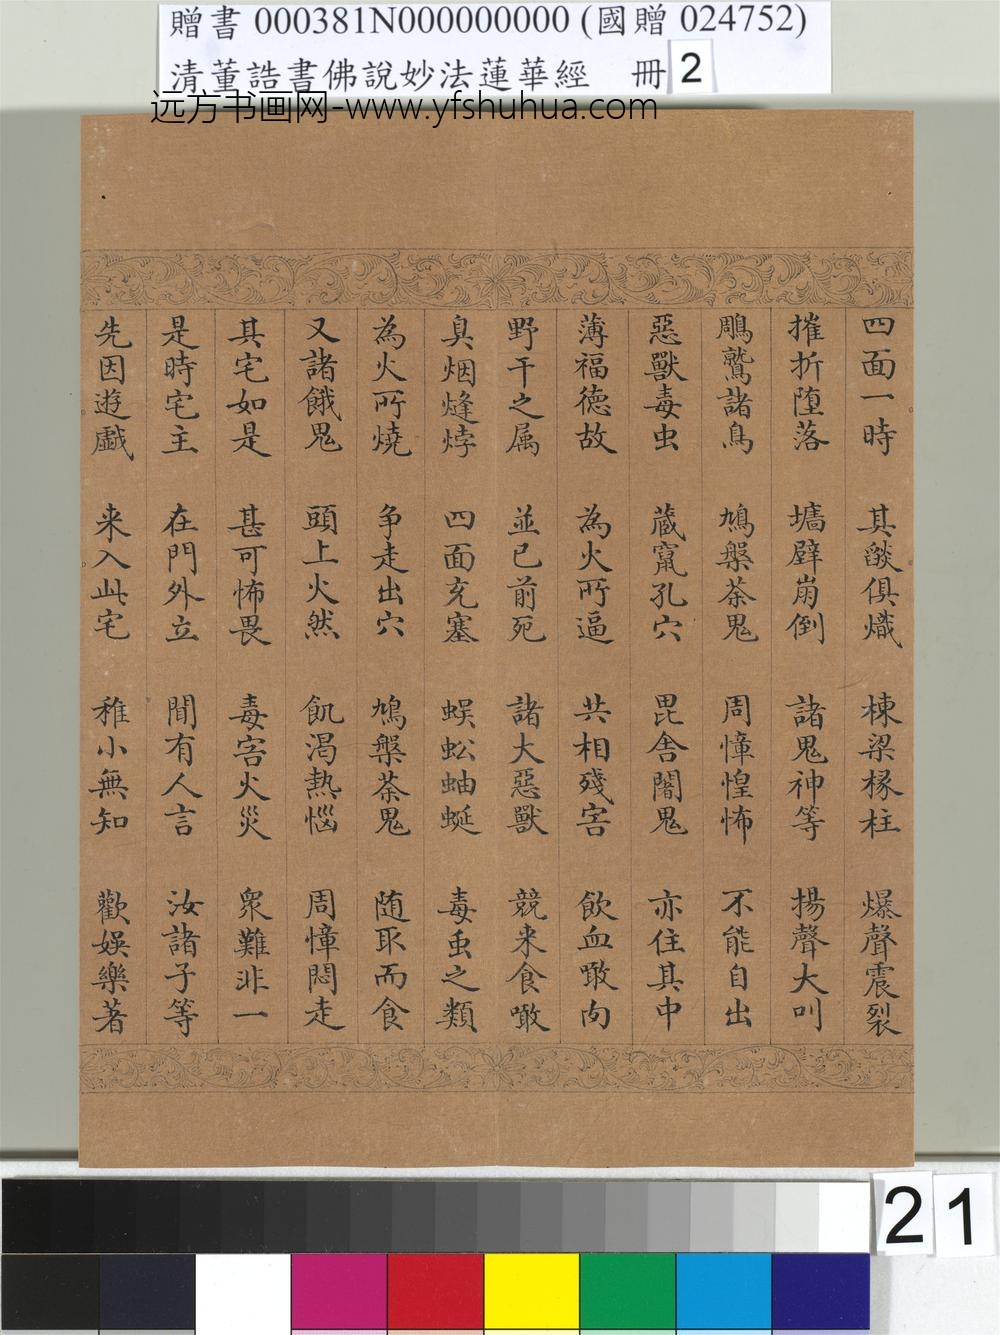 贈書 000381N000000000 (國贈 024752)
清董誥書佛說妙法蓮華經 冊 2
远方书画网-www.yfshuhua.com
四面一時 其燄俱熾 棟梁椽柱 爆聲震裂
摧折墮落 墻壁崩倒 諸鬼神等 揚聲大叫
鵰鷲諸鳥 鳩槃荼鬼 周慞惶怖 不能自出
惡獸毒虫 藏竄孔穴 毘舍闍鬼 亦住其中
薄福德故 為火所逼 共相殘害 飲血噉肉
野干之属 並已前死 諸大惡獸 競来食噉
臭烟熢㶿 四面充塞 蜈蚣蚰蜒 毒虫之類
為火所燒 争走出穴 鳩槃荼鬼 随取而食
又諸餓鬼 頭上火然 飢渴熱惱 周慞悶走
其宅如是 甚可怖畏 毒害火災 衆難非一
是時宅主 在門外立 聞有人言 汝諸子等
先因遊戲 来入此宅 稚小無知 歡娛樂著
21